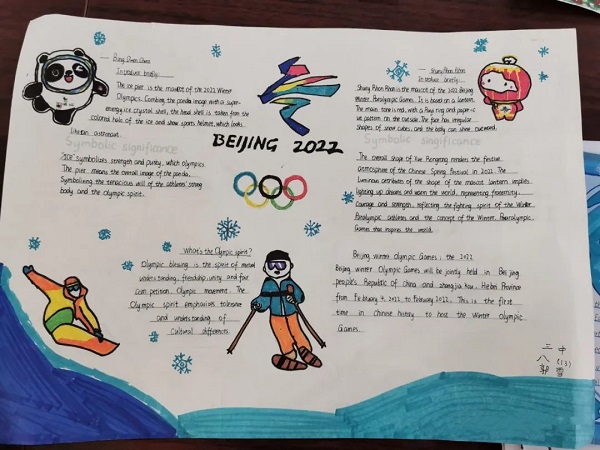 Bing Dwen Dwen
Introduce briefly
Ice pier is the mascot of the 2022 Winter
Olympics. Combing the panda image with a super-
energy ice crystal shell, the head shell is taken from the
colored halo of the ice and snow sports helmet, which looks
like an astronaut.
Symbolic significance
ICE symbolizes strength and purity, which Olympics.
The pier means the overall image of the panda,
Symbolizing the tenacious will of the athletes' strong
body and the Olympic spirit.
BEIJING 2022
Shuey Rhon Rhon
Introduce briefly
Shuey Rhon Rhon is the mascot of the 2022 Beijing
Winter Paralympic Games. It is based on a lantern.
The main tone is red, with a Ruyi ring and paper-c
ut pattern on the outside. The face has irregular
shapes of snow cubes, and the body can shine outward.
Symbolic singificance
The overall shape of Xue Rongrong renders the festive
atmosphere of the Chinese Spring Festival in 2022. The
luminous attributes of the shape of the mascot lantern implies
lighting up dreams and warm the world, representing fraternity
Courage and strength, reflecting the fighting spirit of the Winter
Paralympic athletes and the concept of the Winter Paralympic
Games that inspires the world.
What's the Olympic spirit?
Olympic blessing is the spirit of mutual
understanding, friendship, unity and fair
competition. Olympic movement. The
Olympic spirit emphasizes tolerance
and understanding of
cultural differences.
Beijing winter Olympic Games: the 2022
Beijing winter Olympic Games will be jointly held in Beijing
people's Republic of China and zhang jia kou, Hebei Province
from February 4, 2022 to February 2022. This is the first
time in Chinese history to host the Winter Olympic
Games.
三中
八(13)
郭雪